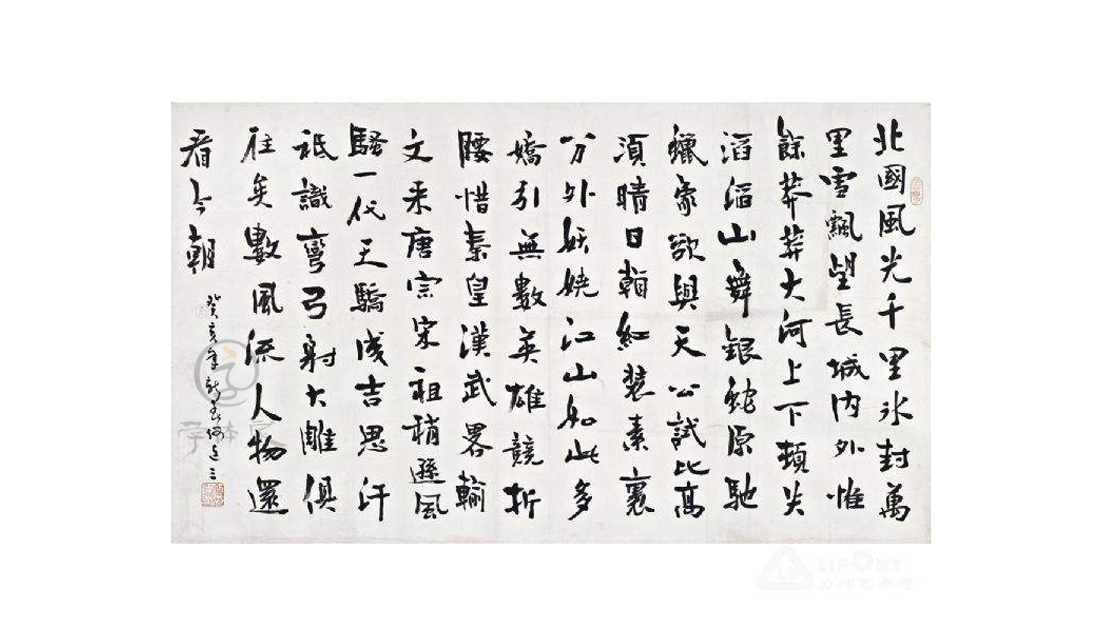 北國風光千里冰封萬
里雪飄望長城内外惟
餘莽莽大河上下頓失
滔滔山舞銀蛇原馳
蠟象欲與天公試比高
須晴日紅裝素裹
分外妖嬈江山如此多
嬌引無數英雄競折
腰惜秦皇漢武畧輸
文采唐宗宋祖稍遜風
騷一代天驕成吉思汗
祗識彎弓射大雕俱
往矣數風流人物還
看今朝
癸亥年新春何
字体家
LIFONT